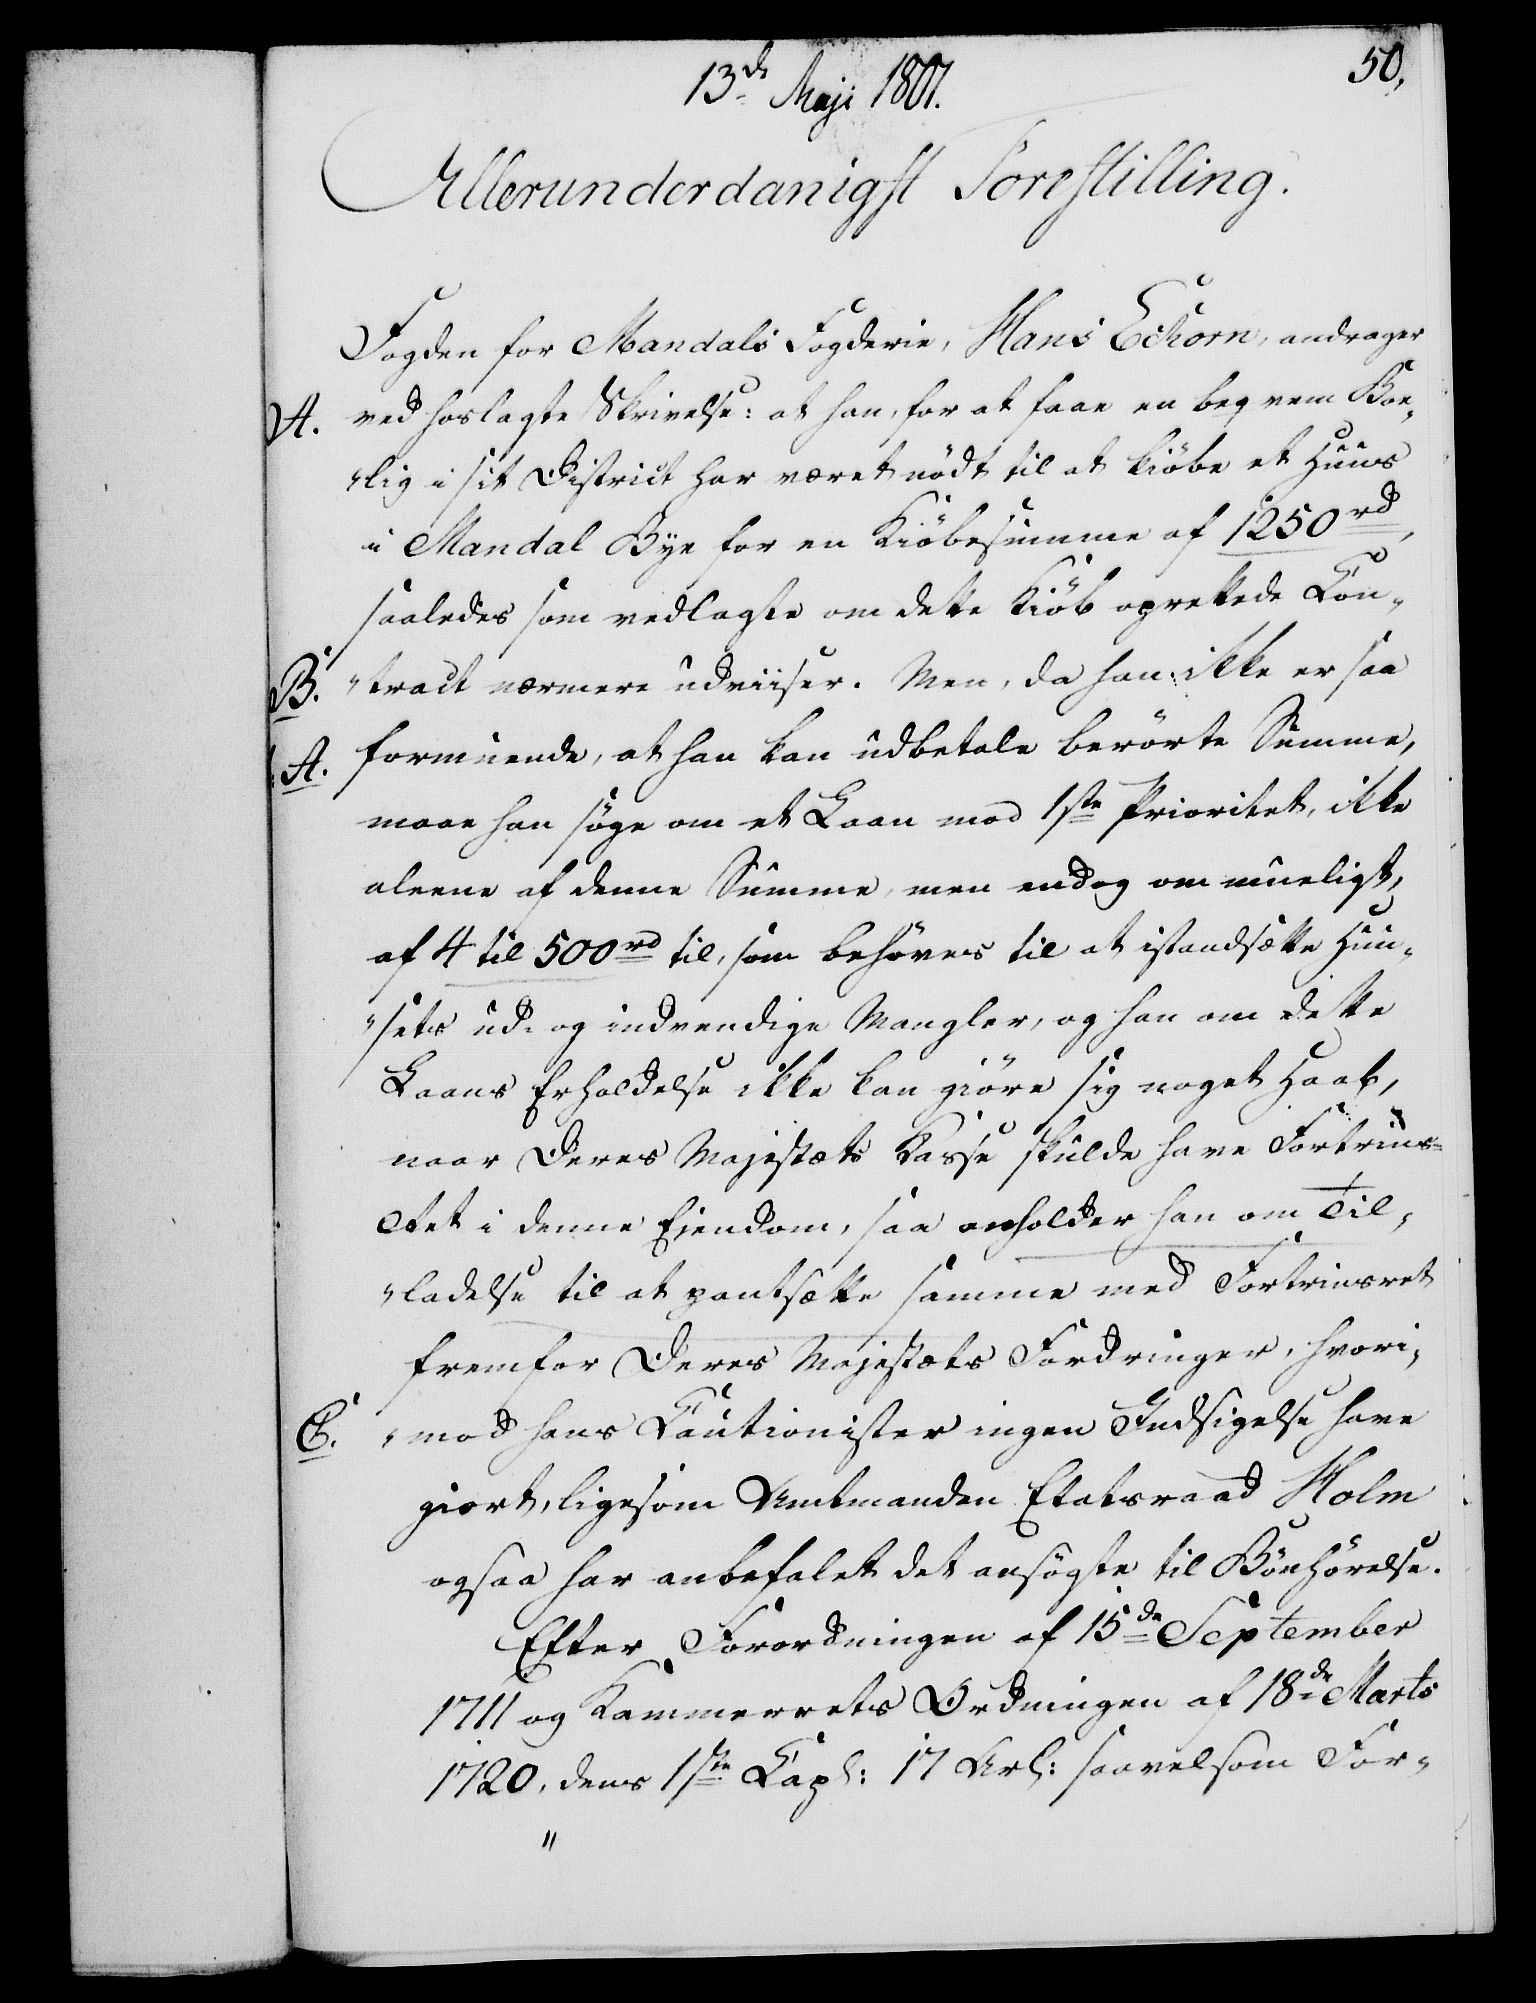 13de Maji 1801.
50,
Allerunderdanigst Forestilling.
Fogden for Mandals Fogderie, Hans Eckorn, andrager
A. ved hoslagte Skrivelse: at han, for at faae en beqvem Boe„
„lig i sit District har været nödt til at kiöbe et Huus
i Mandal Bye for en Kiöbesumme af 1250rd,
saaledes som vedlagte om dette Kiöb oprettede Con„
B. „tract nærmere udviiser. Men, da han ikke er saa
A. formuende, at han kan udbetale berörte Summe,
maae han söge om et Laan mod 1ste Prioritet, ikke
aleene af denne Summe, men endog om mueligt,
af 4 til 500rd til, som behöves til at istandsætte Huu„
„sets ud- og indvendige Mangler, og han om dette
Laans Erholdelse ikke kan giöre sig noget Haab,
naar Deres Majestæts Kasse skulde have Fortrins-
ret i denne Eiendom, saa anholder han om Til„
„ladelse til at pantsætte samme med Fortrinsret
fremfor Deres Majestæts Fordringer, hvori„
C. „mod hans Cautionister ingen Indsigelse have
giort, ligesom Amtmanden Etatsraad Holm
ogsaa har anbefalet det ansögte til Bönhörelse.
Efter Forordningen af 15de September
1711 og Kammerrets Ordningen af 18de Marts
1720, dens 1ste Cap: 17 Art: saavelsom For-
"